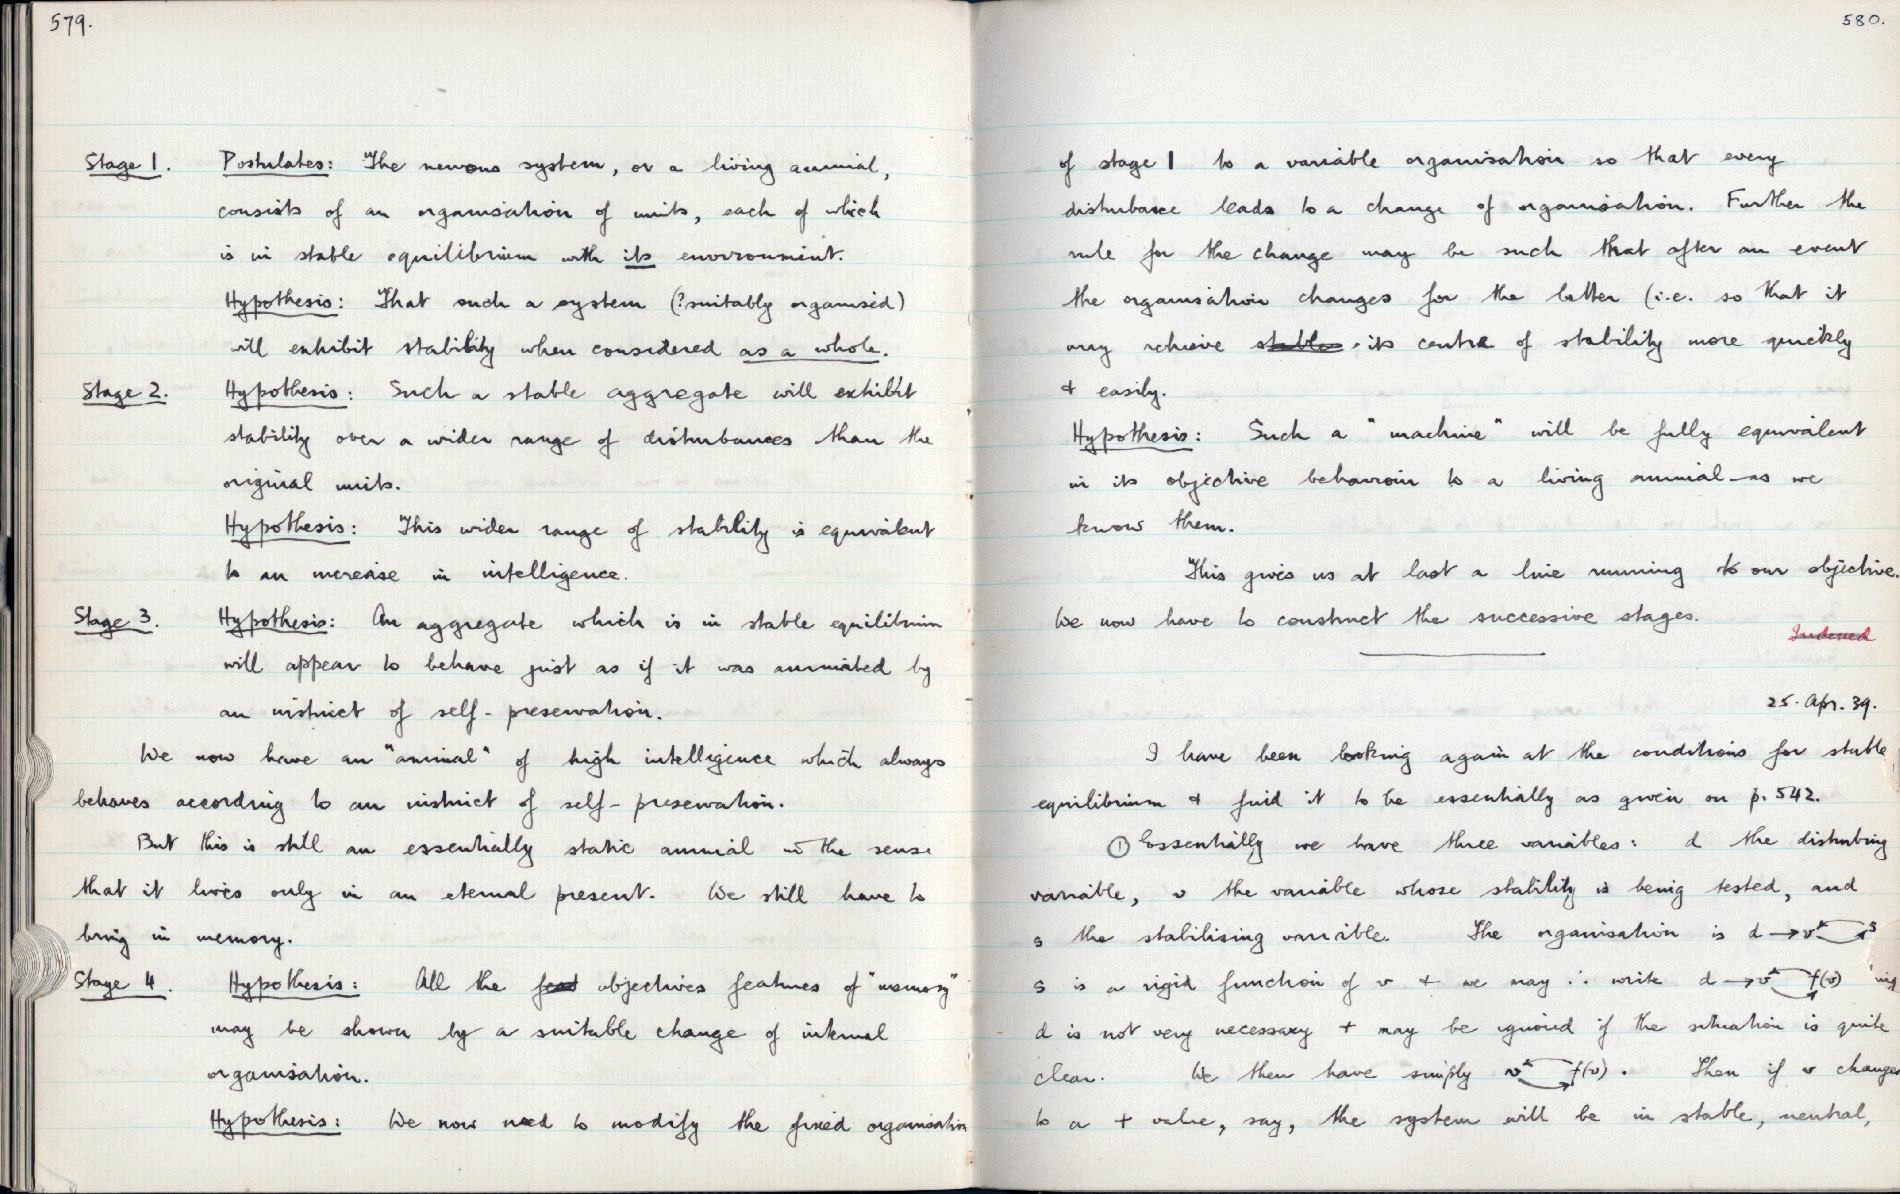 579.
Stage 1. Postulates: The nervous system, or a living animal,
consists of an organisation of units, each of which
is in stable equilibrium with its environment.
Hypothesis: That such a system (?suitably organised)
will exhibit stability when considered as a whole.
Stage 2. Hypothesis: Such a stable aggregate will exhibit
stability over a wider range of disturbances than the
original units.
Hypothesis: This wider range of stability is equivalent
to an increase in intelligence.
Stage 3. Hypothesis: An aggregate which is in stable equilibrium
will appear to behave just as if it was animated by
an instinct of self-preservation.
We now have an "animal" of high intelligence which always
behaves according to an instinct of self-preservation.
But this is still an essentially static animal in the sense
that it lives only in an eternal present. We still have to
bring in memory.
Stage 4. Hypothesis: All the feat objectives features of "memory"
may be shown by a suitable change of internal
organisation.
Hypothesis: We now need to modify the fixed organisation
580.
of stage 1 to a variable organisation so that every
disturbance leads to a change of organisation. Further the
rule for the change may be such that after an event
the organisation changes for the better (i.e. so that it
may achieve stable its centre of stability more quickly
& easily.
Hypothesis: Such a "machine" will be fully equivalent
in its objective behaviour to a living animal—as we
know them.
This gives us at last a line running to our objective.
We now have to construct the successive stages.
Indexed
25. Apr. 39.
I have been looking again at the conditions for stable
equilibrium & find it to be essentially as given on p. 542.
① Essentially we have three variables: d the disturbing
variable, v the variable whose stability is being tested, and
s the stabilising variable. The organisation is d → v ⇄ s
s is a rigid function of v & we may ∴ write d → v ⇄ f(v)
d is not very necessary + may be ignored if the situation is quite
clear. We then have simply v ⇄ f(v). Then if v changes
to a + value, say, the system will be in stable, neutral,